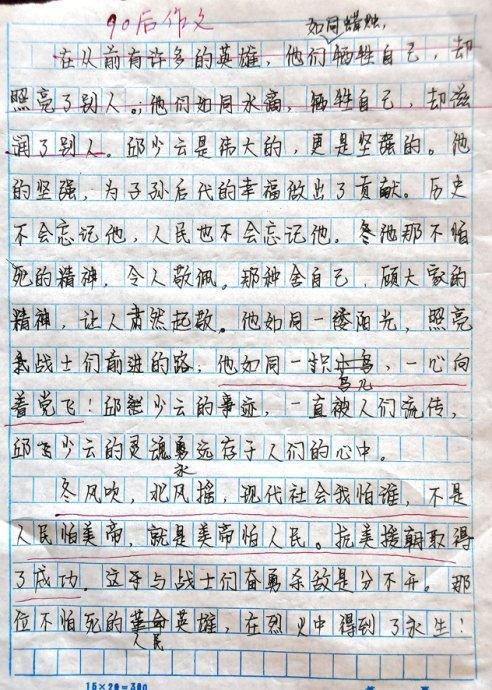 90后作文
如同蜡烛,
在从前有许多的英雄，他们牺牲自己，却
照亮了别人。他们如同水滴，牺牲自己，却滋
润了别人。邱少云是伟大的，更是坚强的。他
的坚强，为子孙后代的幸福做出了贡献。历史
不会忘记他，人民也不会忘记他。他那不怕
死的精神，令人敬佩。那种舍自己，顾大家的
精神，让人肃然起敬。他如同一缕阳光，照亮
战士们前进的路，他如同一只小鸟，一心向
鸟儿
着党飞！邱少云的事迹，一直被人们流传，
邱少云的灵魂远存于人们的心中。
永
冬风吹，北风摇，现代社会我怕谁，不是
人民怕美帝，就是美帝怕人民。抗美援朝取得
了成功。这于与战士们奋勇杀敌是分不开。那
位不怕死的革命英雄，在烈火中得到了永生！
人民
15×20=300